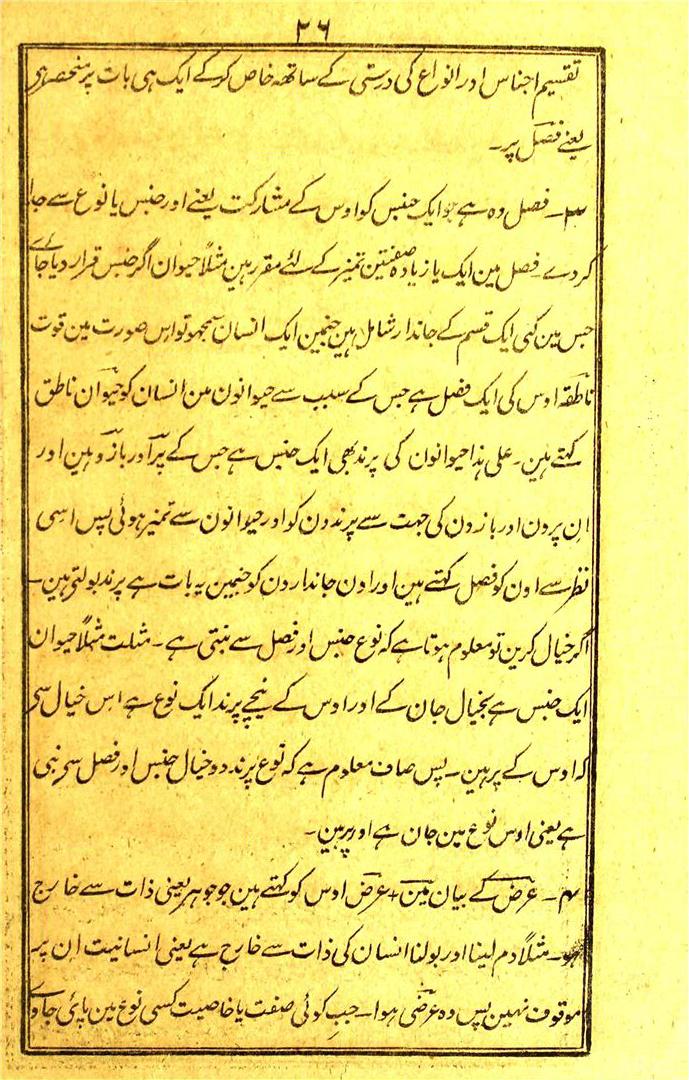 ۳۶
تقسیم اجناس اور انواع کی درستی کے ساتھہ خاص کر کے ایک ہی بات پر منحصر ہی
یعنے فصل پر۔
۳۔ فصل وہ ہے جو ایک جنس کو اوس کے مشارکت یعنے اور جنس یا نوع سے جدا
کر دے۔ فصل مین ایک یا زیادہ صفتین تمیز کے لئے مقرر ہین مثلاً حیوان اگر جنس قرار دیا جاے
جس مین کئی ایک قسم کے جاندار شامل ہین جنمین ایک انسان سمجھو تو اس صورت مین قوت
ناطقہ اوس کی ایک فصل ہے جس کے سبب سے حیوانون مین انسان کو حیوان ناطق
کہتے ہین۔ علی ہذا حیوانون کی پرند بھی ایک جنس ہے جس کے پر اور بازو ہین اور
ان پرون اور بازون کی جہت سے پرندون کو اور حیوانون سے تمیز ہوئی پس اسی
نظر سے اون کو فصل کہتے ہین اور اون جاندارون کو جنمین یہ بات ہے پرند بولتی ہین۔
اگر خیال کرین تو معلوم ہوتا ہے کہ نوع جنس اور فصل سے بنتی ہے۔ مثلت مثلاً حیوان
ایک جنس ہے بخیال جان کے اور اوس کے نیچے پرند ایک نوع ہے اس خیال سی
کہ اوس کے پر ہین۔ پس صاف معلوم ہے کہ نوع پرند دو خیال جنس اور فصل سی بنی
ہے یعنی اوس نوع مین جان ہے اور پر ہین۔
۴۔ عرض کے بیان مین + عرض اوس کو کہتے ہین جو جوہر یعنی ذات سے خارج
ہو۔ مثلاً دم لینا اور بولنا انسان کی ذات سے خارج ہے یعنی انسانیت ان پر
موقوف نہین پس وہ عرضی ہوا۔ جب کوئی صفت یا خاصیت کسی نوع مین پائی جاوے